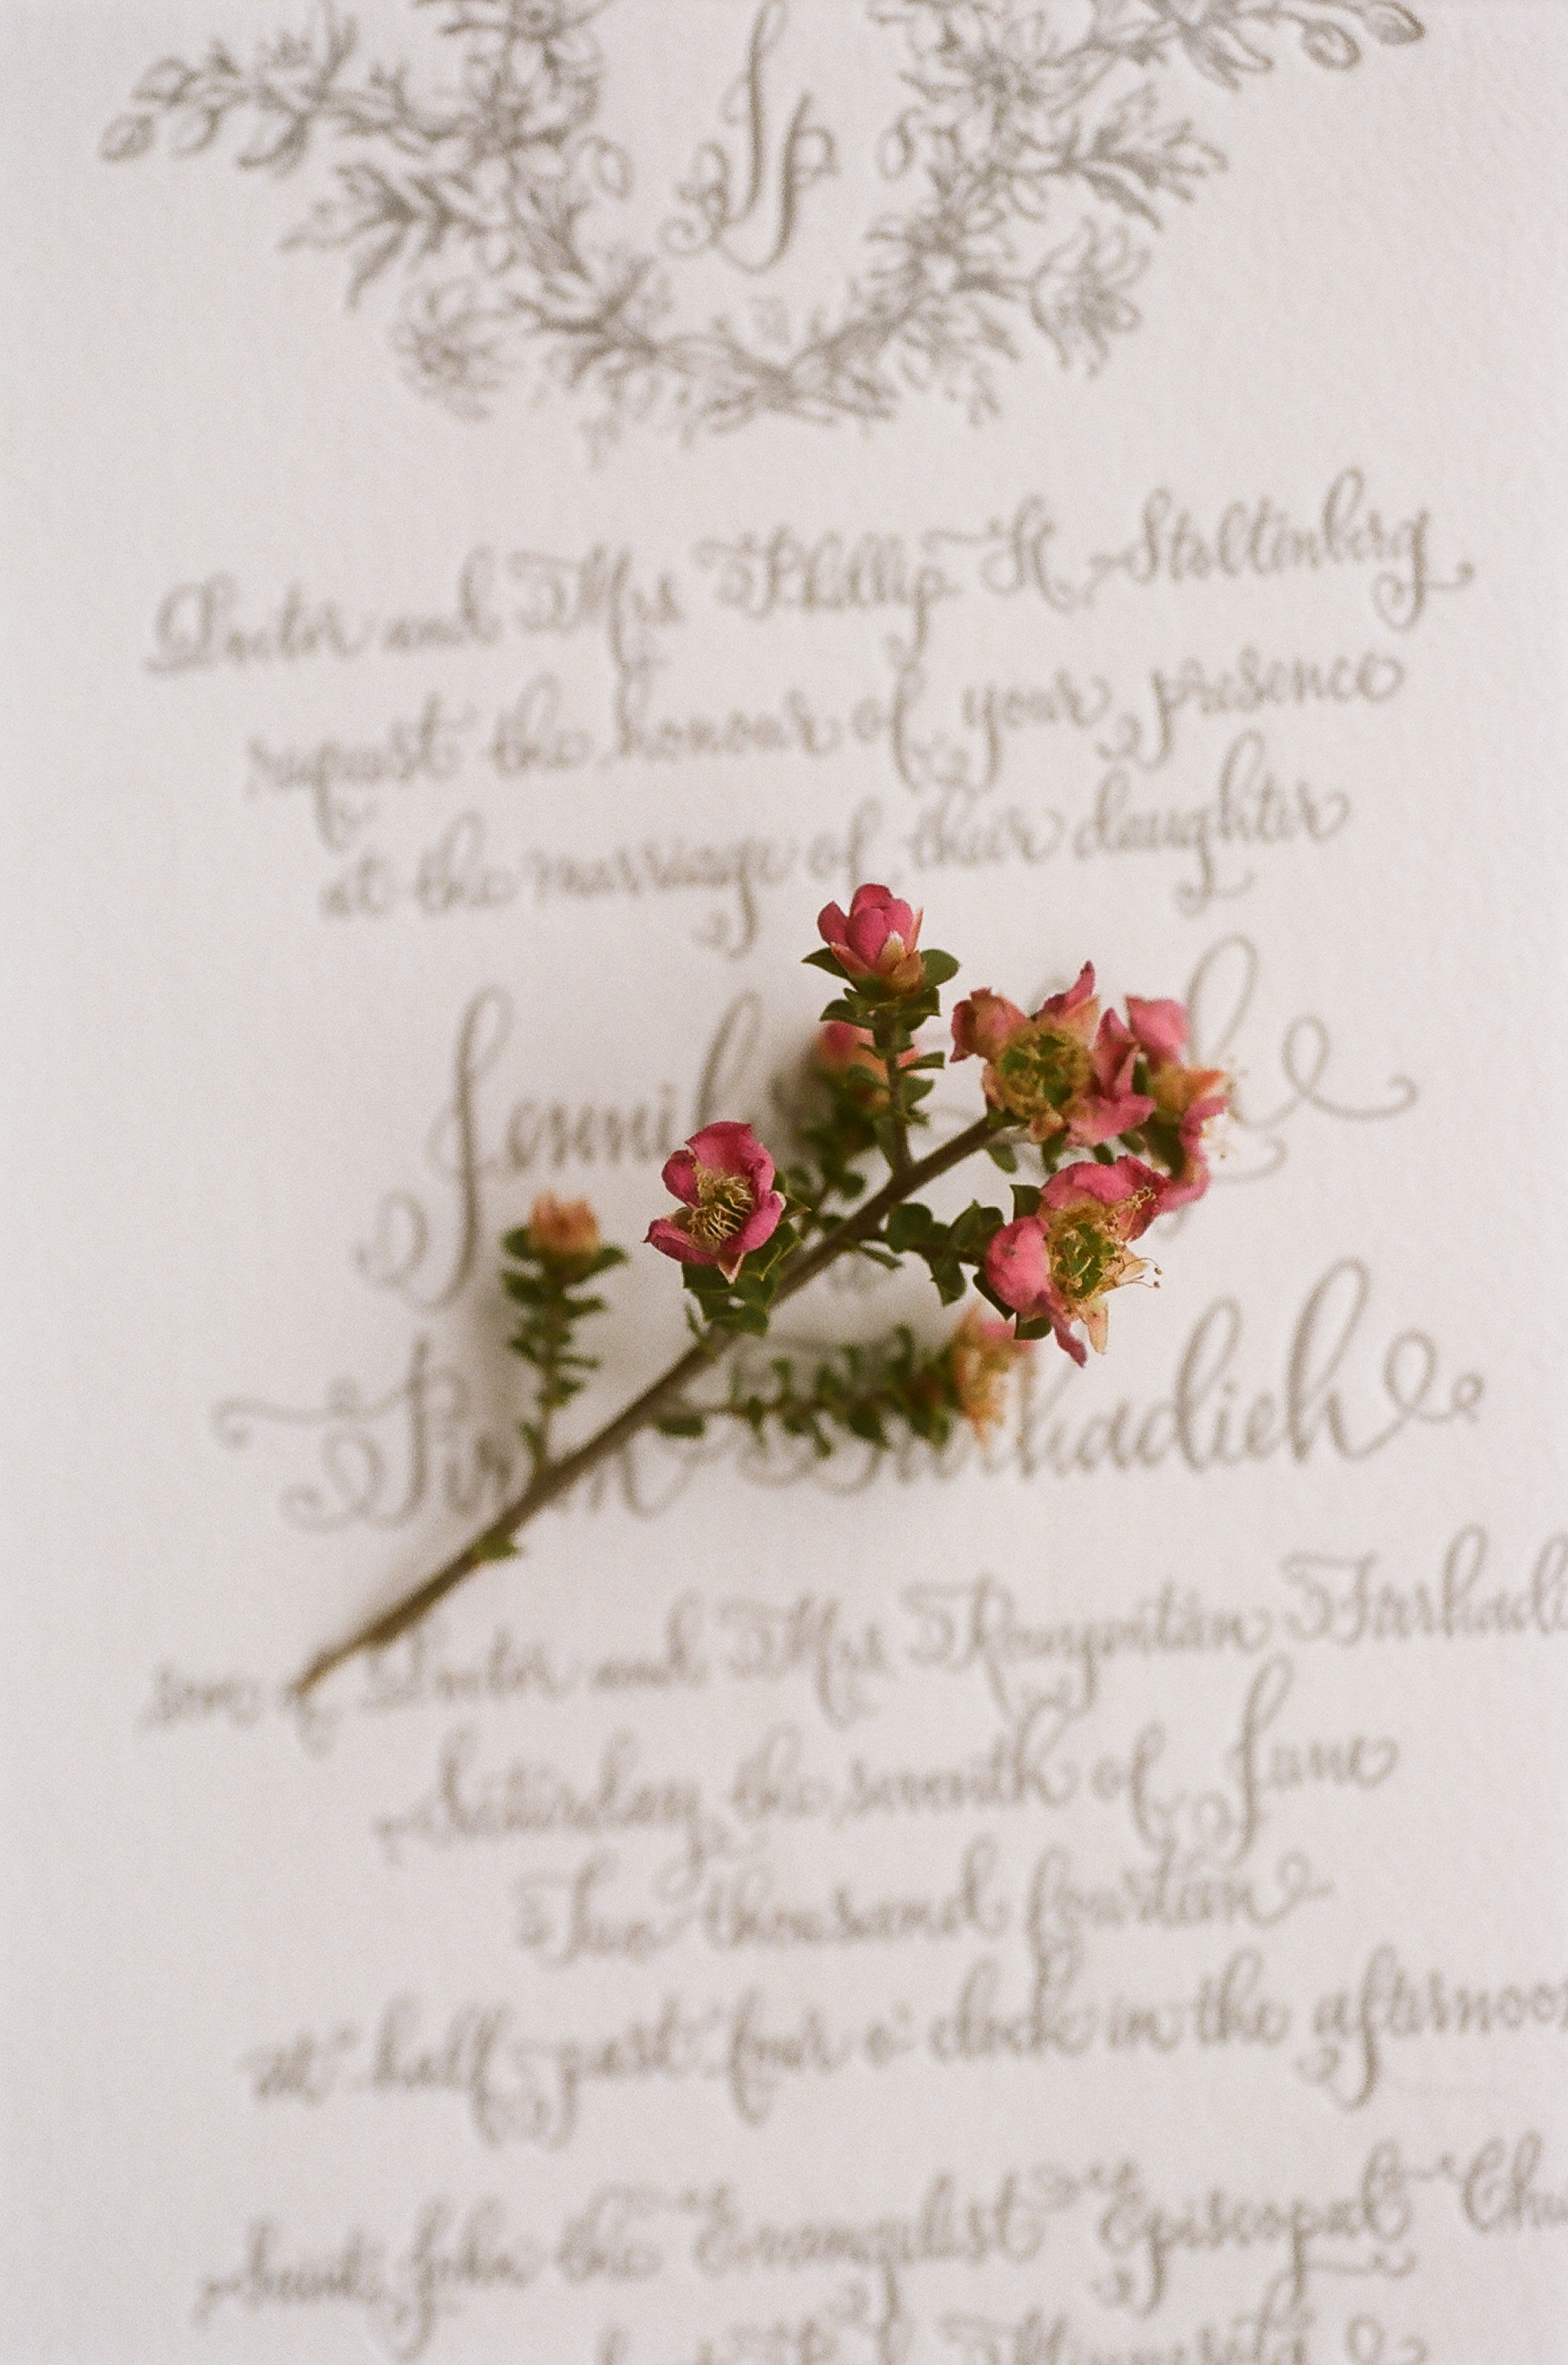 Doctor and Mrs Phillip H Stoltenberg
request the honour of your presence
at the marriage of their daughter
son of Doctor and Mrs
Saturday the seventh of June
Two thousand fourteen
at half past four o'clock in the afternoon
Saint John the Evangelist Episcopal